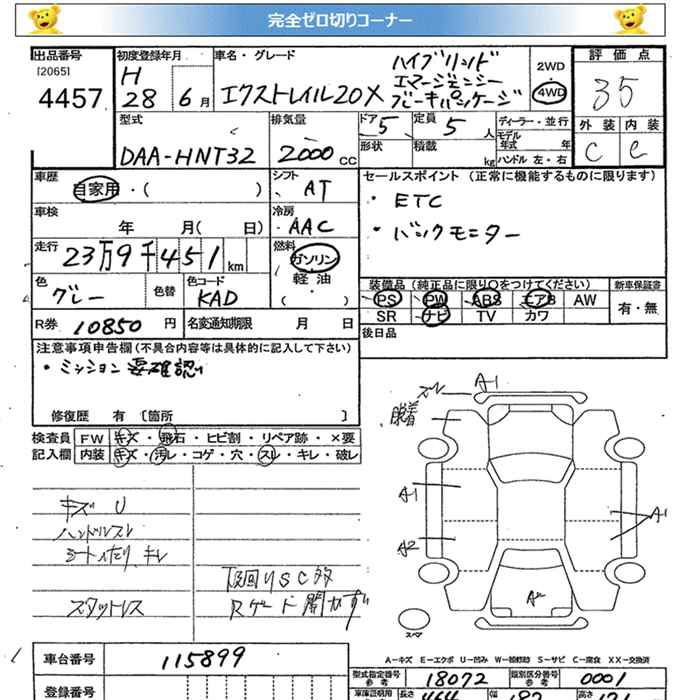 完全ゼロ切りコーナー
出品番号 初度登録年月 車名・グレード ハイブリッド 2WD 評価点
[2065] H エマージェンシー
4457 28 6月 エクストレイル20X ブレーキパッケージ 4WD 35
型式 排気量 ドア 5 定員 5 人 ディーラー・並行 外装 内装
DAA-HNT32 2000 CC 形状 積載 kg モデル年式 年
ハンドル 左・右 C C
車歴 シフト セールスポイント (正常に機能するものに限ります)
自家用・( ) AT ・ETC
車検 冷房 ・バックモニター
年 月( 日) AAC
走行 23万9千451km 燃料 ガソリン・軽油・( )
色 色替 色コード 装備品(純正品に限り○をつけてください) 新車保証書
グレー KAD PS PW ABS エアB AW 有・無
SR ナビ TV カワ
R券 10850 円 名変通知期限 月 日 後日品
注意事項申告欄(不具合内容等は具体的に記入して下さい)
・ミッション要確認
修復歴 有 〔箇所 〕
検査員 FW キズ・飛石・ヒビ割・リペア跡・×要
記入欄 内装 キズ・汚レ・コゲ・穴・スレ・キレ・破レ
ズレ A-1
脱着
A-1 A-1
A2
A2
スペア
キズ U
ハンドルスレ
シートヘたり、キレ
下回りSC多
スタットレス Rゲート開かず
A-キズ E-エクボ U-凹み W-補修跡 S-サビ C-腐食 XX-交換済
車台番号 115899 型式指定番号 参考 18072 類別区分番号 参考 0001
登録番号 車庫証明用 参考 長さ 464 幅 182 高さ